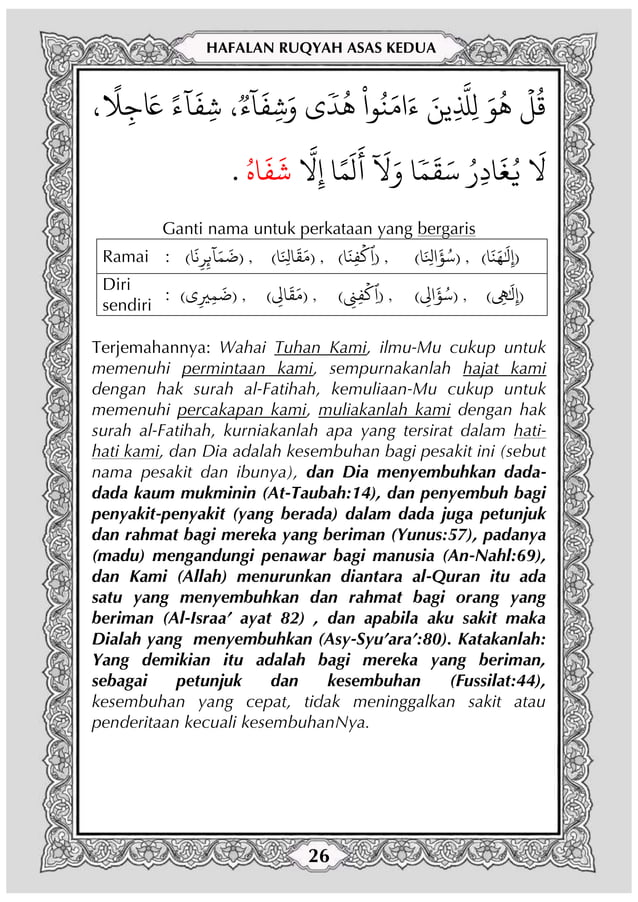 HAFALAN RUQYAH ASAS KEDUA
قُلْ هُوَ لِلَّذِينَ ءَامَنُوا۟ هُدًى وَشِفَآءٌ، شِفَآءً عَاجِلًا،
لَا يُغَادِرُ سَقَمًا وَلَآ أَلَمًا إِلَّا شَفَاهُ .
Ganti nama untuk perkataan yang bergaris
Ramai : (إِلَـٰهَنَا) , (سُؤَالِنَا) , (ٱكْفِنَا) , (مَقَالِنَا) , (ضَمَآئِرِنَا)
Diri sendiri : (إِلَـٰهِى) , (سُؤَالِى) , (ٱكْفِنِى) , (مَقَالِى) , (ضَمِيرِى)
Terjemahannya: Wahai Tuhan Kami, ilmu-Mu cukup untuk
memenuhi permintaan kami, sempurnakanlah hajat kami
dengan hak surah al-Fatihah, kemuliaan-Mu cukup untuk
memenuhi percakapan kami, muliakanlah kami dengan hak
surah al-Fatihah, kurniakanlah apa yang tersirat dalam hati-
hati kami, dan Dia adalah kesembuhan bagi pesakit ini (sebut
nama pesakit dan ibunya), dan Dia menyembuhkan dada-
dada kaum mukminin (At-Taubah:14), dan penyembuh bagi
penyakit-penyakit (yang berada) dalam dada juga petunjuk
dan rahmat bagi mereka yang beriman (Yunus:57), padanya
(madu) mengandungi penawar bagi manusia (An-Nahl:69),
dan Kami (Allah) menurunkan diantara al-Quran itu ada
satu yang menyembuhkan dan rahmat bagi orang yang
beriman (Al-Israa’ ayat 82) , dan apabila aku sakit maka
Dialah yang menyembuhkan (Asy-Syu’ara’:80). Katakanlah:
Yang demikian itu adalah bagi mereka yang beriman,
sebagai petunjuk dan kesembuhan (Fussilat:44),
kesembuhan yang cepat, tidak meninggalkan sakit atau
penderitaan kecuali kesembuhanNya.
26